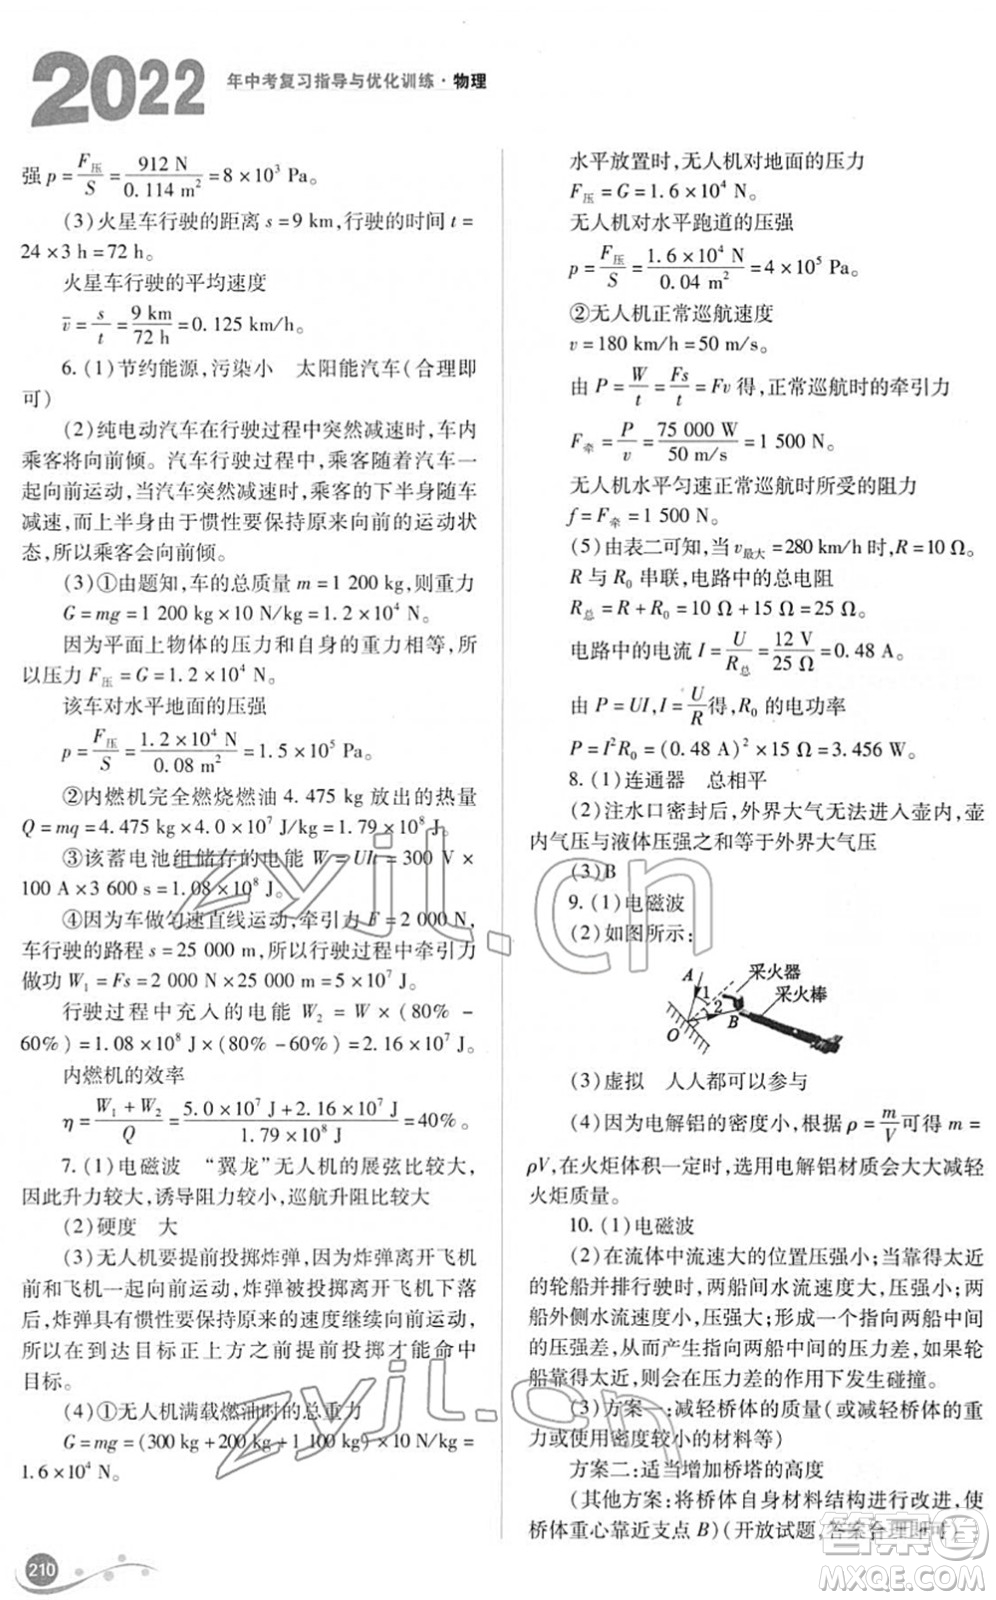 2022 年中考复习指导与优化训练·物理
强 p = F压/S = 912 N/0.114 m² = 8×10³ Pa。
(3)火星车行驶的距离 s = 9 km,行驶的时间 t =
24×3 h = 72 h。
火星车行驶的平均速度
v̄ = s/t = 9 km/72 h = 0.125 km/h。
6.(1)节约能源,污染小　太阳能汽车(合理即
可)
(2)纯电动汽车在行驶过程中突然减速时,车内
乘客将向前倾。汽车行驶过程中,乘客随着汽车一
起向前运动,当汽车突然减速时,乘客的下半身随车
减速,而上半身由于惯性要保持原来向前的运动状
态,所以乘客会向前倾。
(3)①由题知,车的总质量 m = 1 200 kg,则重力
G = mg = 1 200 kg×10 N/kg = 1.2×10⁴ N。
因为平面上物体的压力和自身的重力相等,所
以压力 F压 = G = 1.2×10⁴ N。
该车对水平地面的压强
p = F压/S = 1.2×10⁴ N/0.08 m² = 1.5×10⁵ Pa。
②内燃机完全燃烧燃油 4.475 kg 放出的热量
Q = mq = 4.475 kg×4.0×10⁷ J/kg = 1.79×10⁸ J。
③该蓄电池组储存的电能 W = UIt = 300 V×
100 A×3 600 s = 1.08×10⁸ J。
④因为车做匀速直线运动,牵引力 F = 2 000 N,
车行驶的路程 s = 25 000 m,所以行驶过程中牵引力
做功 W₁ = Fs = 2 000 N×25 000 m = 5×10⁷ J。
行驶过程中充入的电能 W₂ = W×(80% -
60%) = 1.08×10⁸ J×(80% - 60%) = 2.16×10⁷ J。
内燃机的效率
η = (W₁ + W₂)/Q = (5.0×10⁷ J + 2.16×10⁷ J)/(1.79×10⁸ J) = 40%。
7.(1)电磁波　“翼龙”无人机的展弦比较大,
因此升力较大,诱导阻力较小,巡航升阻比较大
(2)硬度　大
(3)无人机要提前投掷炸弹,炸弹离开飞机
前和飞机一起向前运动,炸弹离开飞机被投掷下落
后,炸弹具有惯性要保持原来的速度继续向前运动,
所以在到达目标正上方之前提前投掷才能命中
目标。
(4)①无人机满载燃油时的总重力
G = mg = (300 kg + 200 kg + 1 100 kg)×10 N/kg =
1.6×10⁴ N。
210
水平放置时,无人机对地面的压力
F压 = G = 1.6×10⁴ N。
无人机对水平跑道的压强
p = F压/S = 1.6×10⁴ N/0.04 m² = 4×10⁵ Pa。
②无人机正常巡航速度
v = 180 km/h = 50 m/s。
由 P = W/t = Fs/t = Fv 得,正常巡航时的牵引力
F牵 = P/v = 75 000 W/50 m/s = 1 500 N。
无人机水平匀速正常巡航时所受的阻力
f = F牵 = 1 500 N。
(5)由表二可知,当 v最大 = 280 km/h 时,R = 10 Ω。
R 与 R₀ 串联,电路中的总电阻
R总 = R + R₀ = 10 Ω + 15 Ω = 25 Ω。
电路中的电流 I = U/R总 = 12 V/25 Ω = 0.48 A。
由 P = UI,I = U/R 得,R₀ 的电功率
P = I²R₀ = (0.48 A)²×15 Ω = 3.456 W。
8.(1)连通器　总相平
(2)注水口密封后,外界大气无法进入壶内,壶
内气压与液体压强之和等于外界大气压
(3)B
9.(1)电磁波
(2)如图所示:
A 1 2 O B 采火器
采火棒
(3)虚拟　人人都可以参与
(4)因为电解铝的密度小,根据 ρ = m/V 可得 m =
ρV,在火炬体积一定时,选用电解铝材质会大大减轻
火炬质量。
10.(1)电磁波
(2)在流体中流速大的位置压强小;当靠得太近
的轮船并排行驶时,两船间水流速度大,压强小;两
船外侧水流速度小,压强大;形成一个指向两船中间
的压强差,从而产生指向两船中间的压力差,如果轮
船靠得太近,会在压力差的作用下发生碰撞。
(3)方案一:减轻桥体的质量(或减轻桥体的重
力或寻找密度较小的材料等)
方案二:适当增加桥塔的高度
(其他方案:将桥体自身材料结构进行改进,使
桥体重心靠近支点 B)(开放试题,答案合理即可)
zyjl.cn
zyjl.cn
答案圈
MXQE.COM